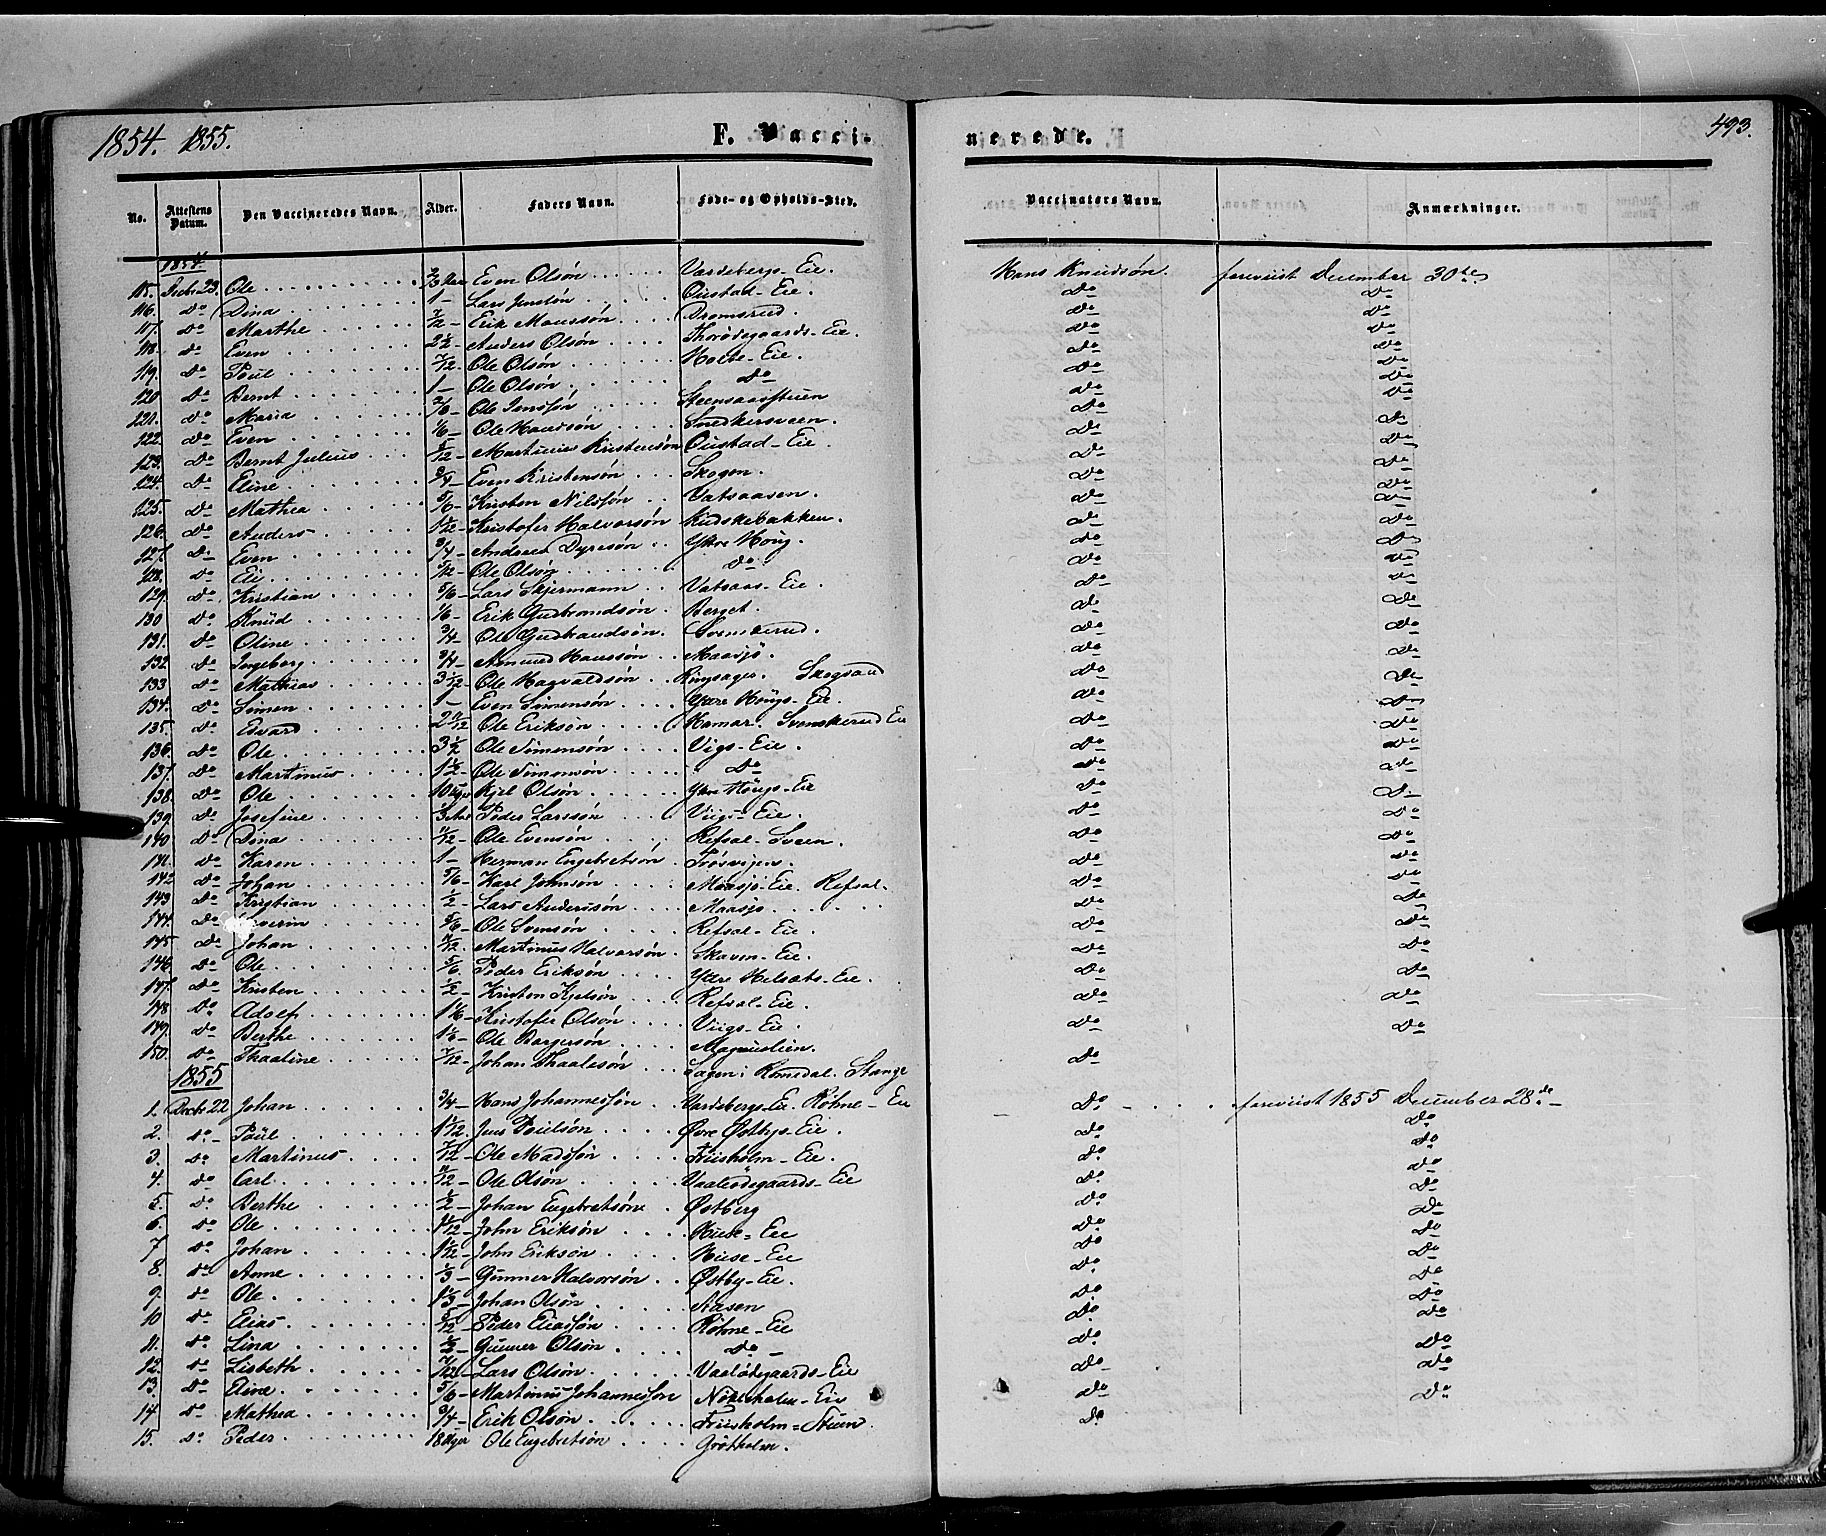 1854. 1855. F. Vacci- nerede. 493.
No. Attestens Datum. Den Vaccineredes Navn. Alder. Faders Navn. Føde- og Opholds-Sted. Vaccinatørs Navn. Anmærkninger.
1854
115. Decbr 23. Ole 2/3 Aar Even Olsøn Vardebergs-Eie. Hans Knudsøn. foreviist December 30te
116. Do Dina 1 – Lars Jensøn Oustad-Eie. Do Do
117. Do Marthe 7/12 – Erik Monssøn Dromsrud. Do Do
118. Do Even 2 1/2 – Anders Olsøn Thorødegaards-Eie. Do Do
119. Do Poul 7/12. Ole Olsøn Holte-Eie. Do Do
120 Do Bernt 1 – Ole Olsøn Do Do Do
121. Do Maria Ole Jenssøn Steensaasstuen Do Do
122. Do Even 1/6 – Ole Hansøn Snedkersveen. Do Do
123. Do Bernt Julius 5/12 – Martinus Kristensøn Oustad-Eie. Do Do
124. Do Eline 3/4 – Even Kristensøn Skogen. Do Do
125. Do Mathea 5/6 – Kristen Nilssøn Vatsaasen. Do Do
126. Do Anders 1 1/2 – Kristofer Halvorsøn Kudskebakken. Do Do
127. Do Even 3/4 – Anders Dyresøn Ytre Houg. Do Do
128. Do Eli Ole Olsøn Do Do Do
129. Do Kristian 5/6 – Lars Skjermann Vatsaas-Eie. Do Do
130 Do Knud 1/6 – Erik Gudbrandsøn Berget. Do Do
131. Do Oline 3/4 – Ole Gudbrandsøn. Svenskerud. Do Do
132. Do Ingeborg 3/4 – Amund Hanssøn Maasjø. Do Do
133 Do Mathias Ole Hagvaldsøn Ringsager. Skogsrud Do Do
134. Do Simen 1 – Even Simensøn Ytre Hougs-Eie. Do Do
135. Do Edvard Ole Eriksøn Hamar. Svenskerud Eie Do Do
136. Do Ole 3 1/2 Ole Simensøn Vigs-Eie. Do Do
137. Do Martinus 1 1/2 – Ole Simensøn Do Do Do
138. Do Ole 10 Uger Kjel Olsøn Ytre Hougs-Eie Do Do
139. Do Josefine Peder Larssøn Viigs-Eie. Do Do
140 Do Dina Ole Evensøn Refsal-Sveen. Do Do
141. Do Karen 1 – Herman Engebretsøn Frøsvijen. Do Do
142 Do Johan 5/6 – Karl Johnsøn Maasjø-Eie. Refsal. Do Do
143 Do Kristian 1/2 – Lars Anderssøn Maasjø Do Do
144. Do Severin 5/6 – Ole Svensøn Refsal-Eie. Do Do
145 Do Johan Martinus Halvorsøn Skaven-Eie. Do Do
146 Do Ole 5/6 Peder Eriksøn Ytre Helsæts-Eie. Do Do
147. Do Kristen 1/2 – Kristen Kjelsøn Refsal-Eie. Do Do
148 Do Adolf 1 1/6 – Kristofer Olsøn Viigs-Eie. Do Do
149. Do Berthe Ole Borgersøn Magnuslien. Do Do
150. Do Thaaline 7/12 – Johan Thaalesøn Sagen i Romedal. Stange Do
1855
1. Decbr 22 Johan 3/4 – Hans Johannessøn Vardebergs-Eie. Røhne-Eie Do foreviist 1855 December 28de
2. Do Poul Jens Poulsøn Øvre Østbys-Eie. Do Do
3. Do Martinus 7/12 – Ole Madssøn Friisholm-Eie. Do Do
4. Do Carl Ole Olsøn Vaalødegaards-Eie Do Do
5. Do Berthe 1/2 – Johan Engebretsøn Østberg Do Do
6. Do Ole John Eriksøn Huse-Eie Do Do
7. Do Johan John Eriksøn Huse-Eie Do Do
8. Do Anne 1/3 – Gunner Halvorsøn Østby-Eie. Do Do
9. Do Ole 1 1/3 – Johan Olsøn Aasen Do Do
10 Do Elias 5/12 – Peder Eliassøn Røhne-Eie Do Do
11. Do Lina Gunner Olsøn Do Do Do
12. Do Lisbeth Lars Olsøn Vaalødegaards-Eie Do Do
13. Do Eline 5/6 – Martinus Johannessøn Nordholm-Eie Do Do
14. Do Mathea 3/4 – Erik Olsøn Friisholm-Stuen Do Do
15. Do Peder 18 Uger Ole Engebretsøn Grøtholm. Do